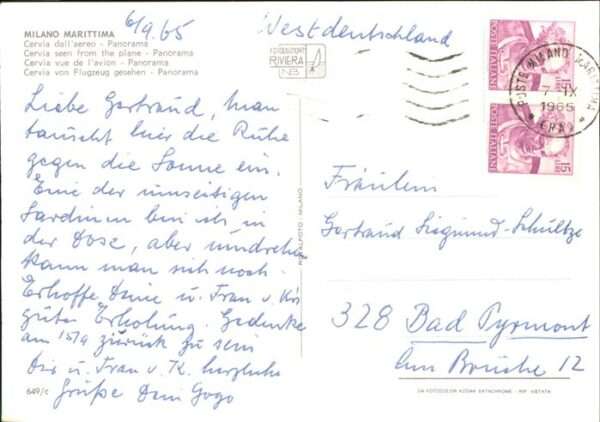 MILANO MARITTIMA
Cervia dall'aereo - Panorama
Cervia seen from the plane - Panorama
Cervia vue de l'avion - Panorama
Cervia von Flugzeug gesehen - Panorama
6/9.65
Westdeutschland
FOTOEDIZIONI
RIVIERA
POSTE ITALIANE
15
POSTE ITALIANE
LIRE 15
POSTE MILANO MARITTIMA
7-IX
1965
(RA)
Liebe Gertraud, man
tauscht hier die Ruhe
gegen die Sonne ein.
Eine der umseitigen
Sardinen bin ich in
der Dose, aber umdrehen
kann man sich noch.
Erhoffe Deine u. Frau v. K's
gute Erholung. Gedenke
am 15/9 zurück zu sein
Dir u. Frau v. K. herzliche
Grüße Dein Gogo
649/c
MILANO
Fräulein
Gertraud Siegmund-Schultze
328 Bad Pyrmont
Am Brüche 12
DA FOTOCOLOR KODAK EKTACHROME - RIP. VIETATA